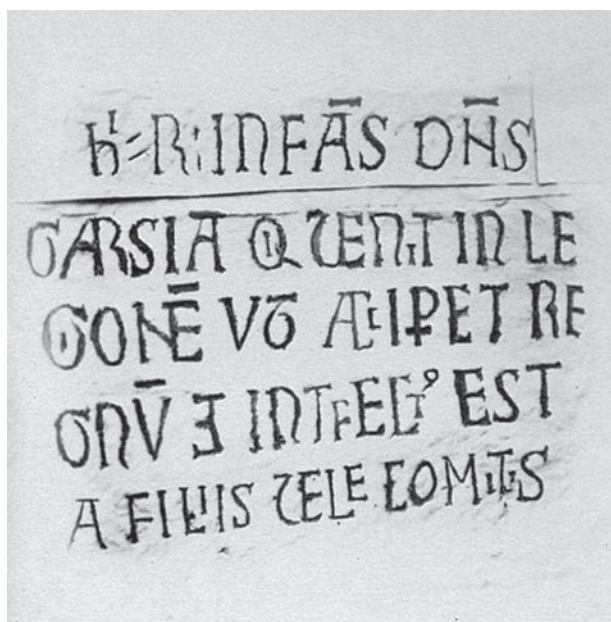 H R INFĀS DN̄S
GARSIA QI VENIT IN LE
GIONĒ VT ACCIꝑET RE
GNV̄ Ǝ INTFECTꝰ EST
A FILIIS VELE COMITIS